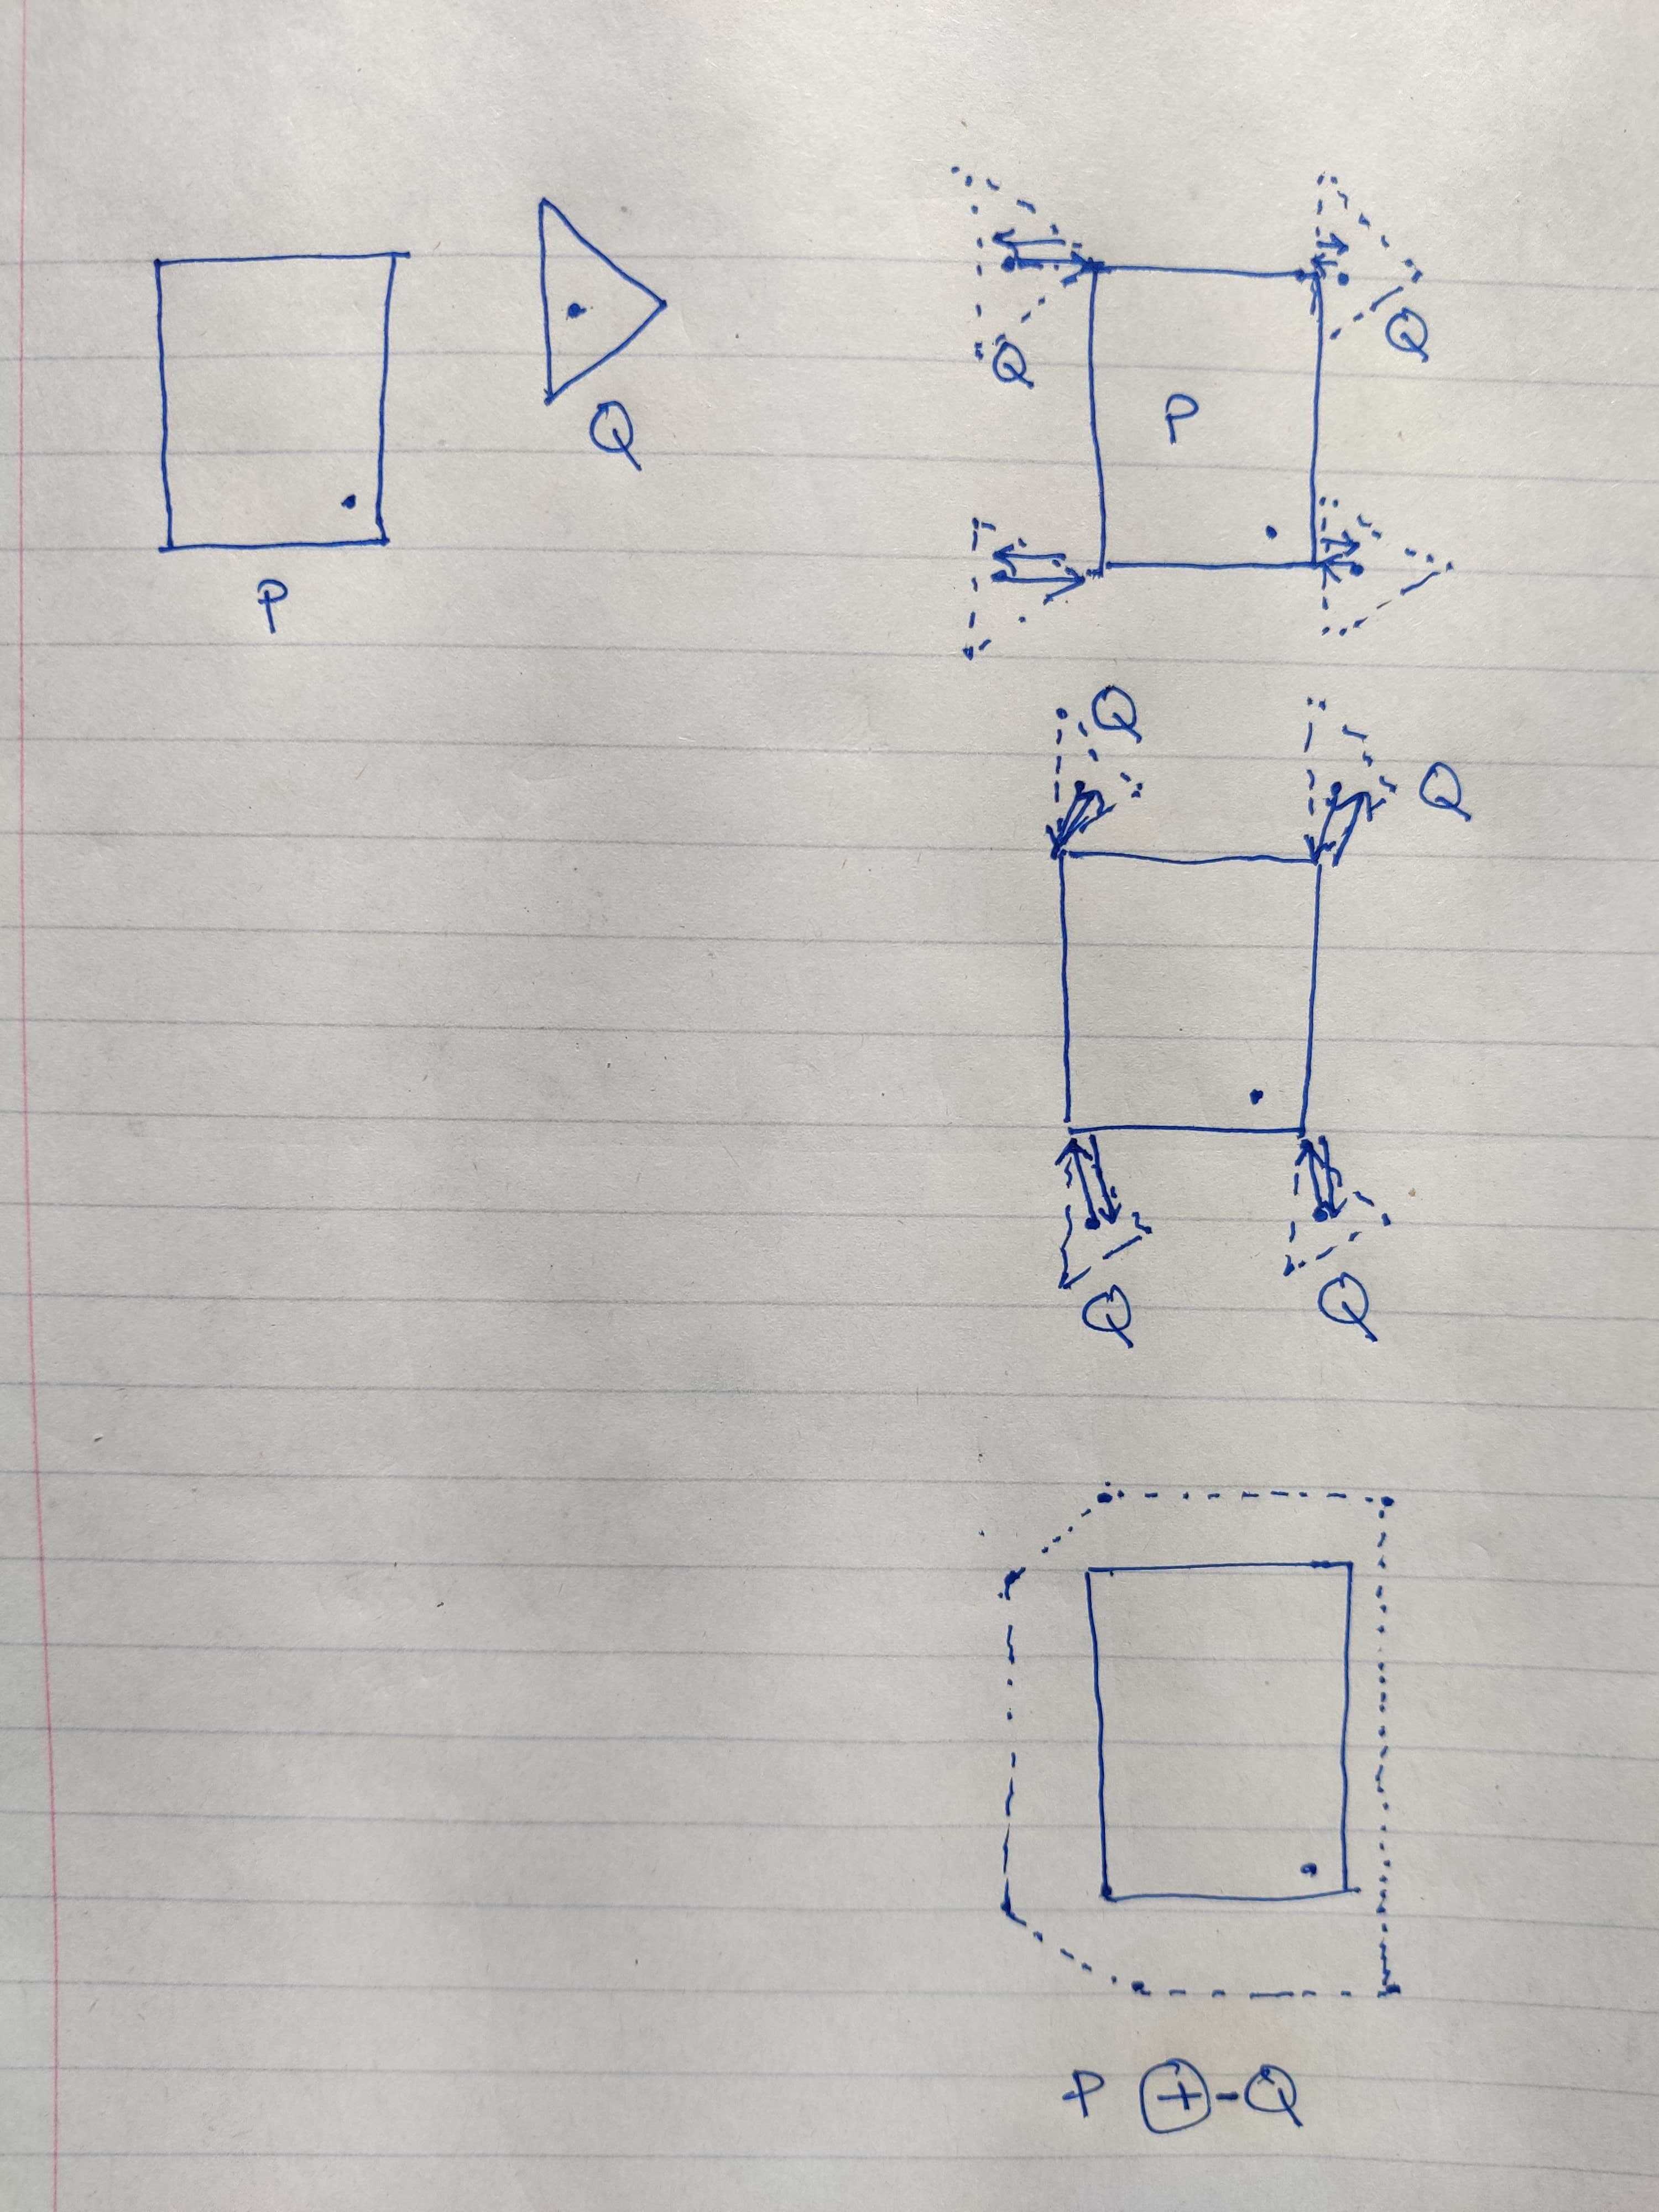 Q
P
Q
Q
P
Q
Q
Q
Q
P ⊕ -Q